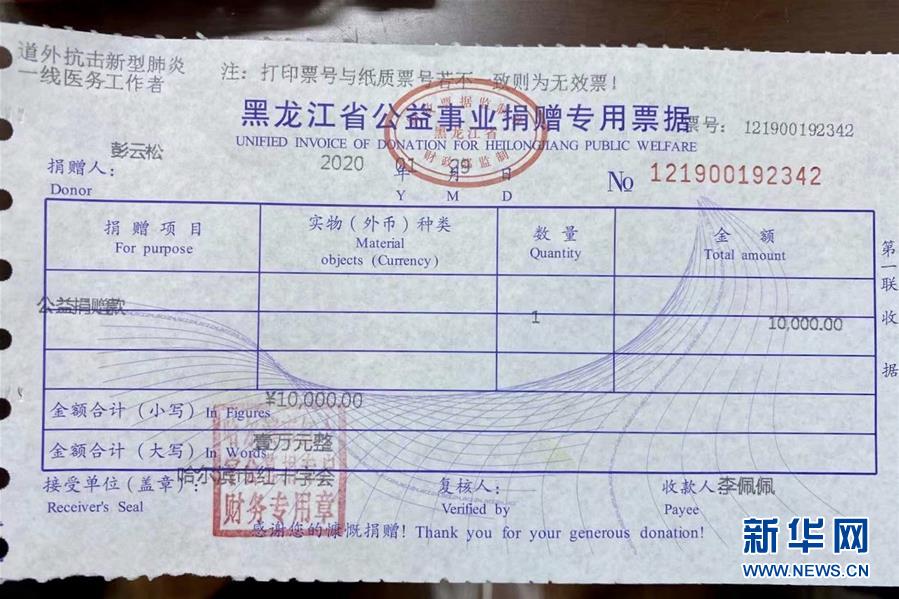 道外抗击新型肺炎
一线医务工作者
注：打印票号与纸质票号若不一致则为无效票！
黑龙江省公益事业捐赠专用票据
票号： 121900192342
UNIFIED INVOICE OF DONATION FOR HEILONGJIANG PUBLIC WELFARE
黑龙江省
财政部监制
彭云松
捐赠人：
Donor
2020 01 29
年 月 日
Y M D
№ 121900192342
捐赠项目 实物（外币）种类 数量 金额
For purpose Material Quantity Total amount
objects (Currency)
公益捐赠款 1 10,000.00
¥10,000.00
金额合计（小写）In Figures
壹万元整
金额合计（大写）In Words
哈尔滨市红十字会
接受单位（盖章）： 复核人： 收款人 李佩佩
Receiver's Seal Verified by Payee
财务专用章
感谢您的慷慨捐赠！Thank you for your generous donation!
第一联 收据
新华网
WWW.NEWS.CN